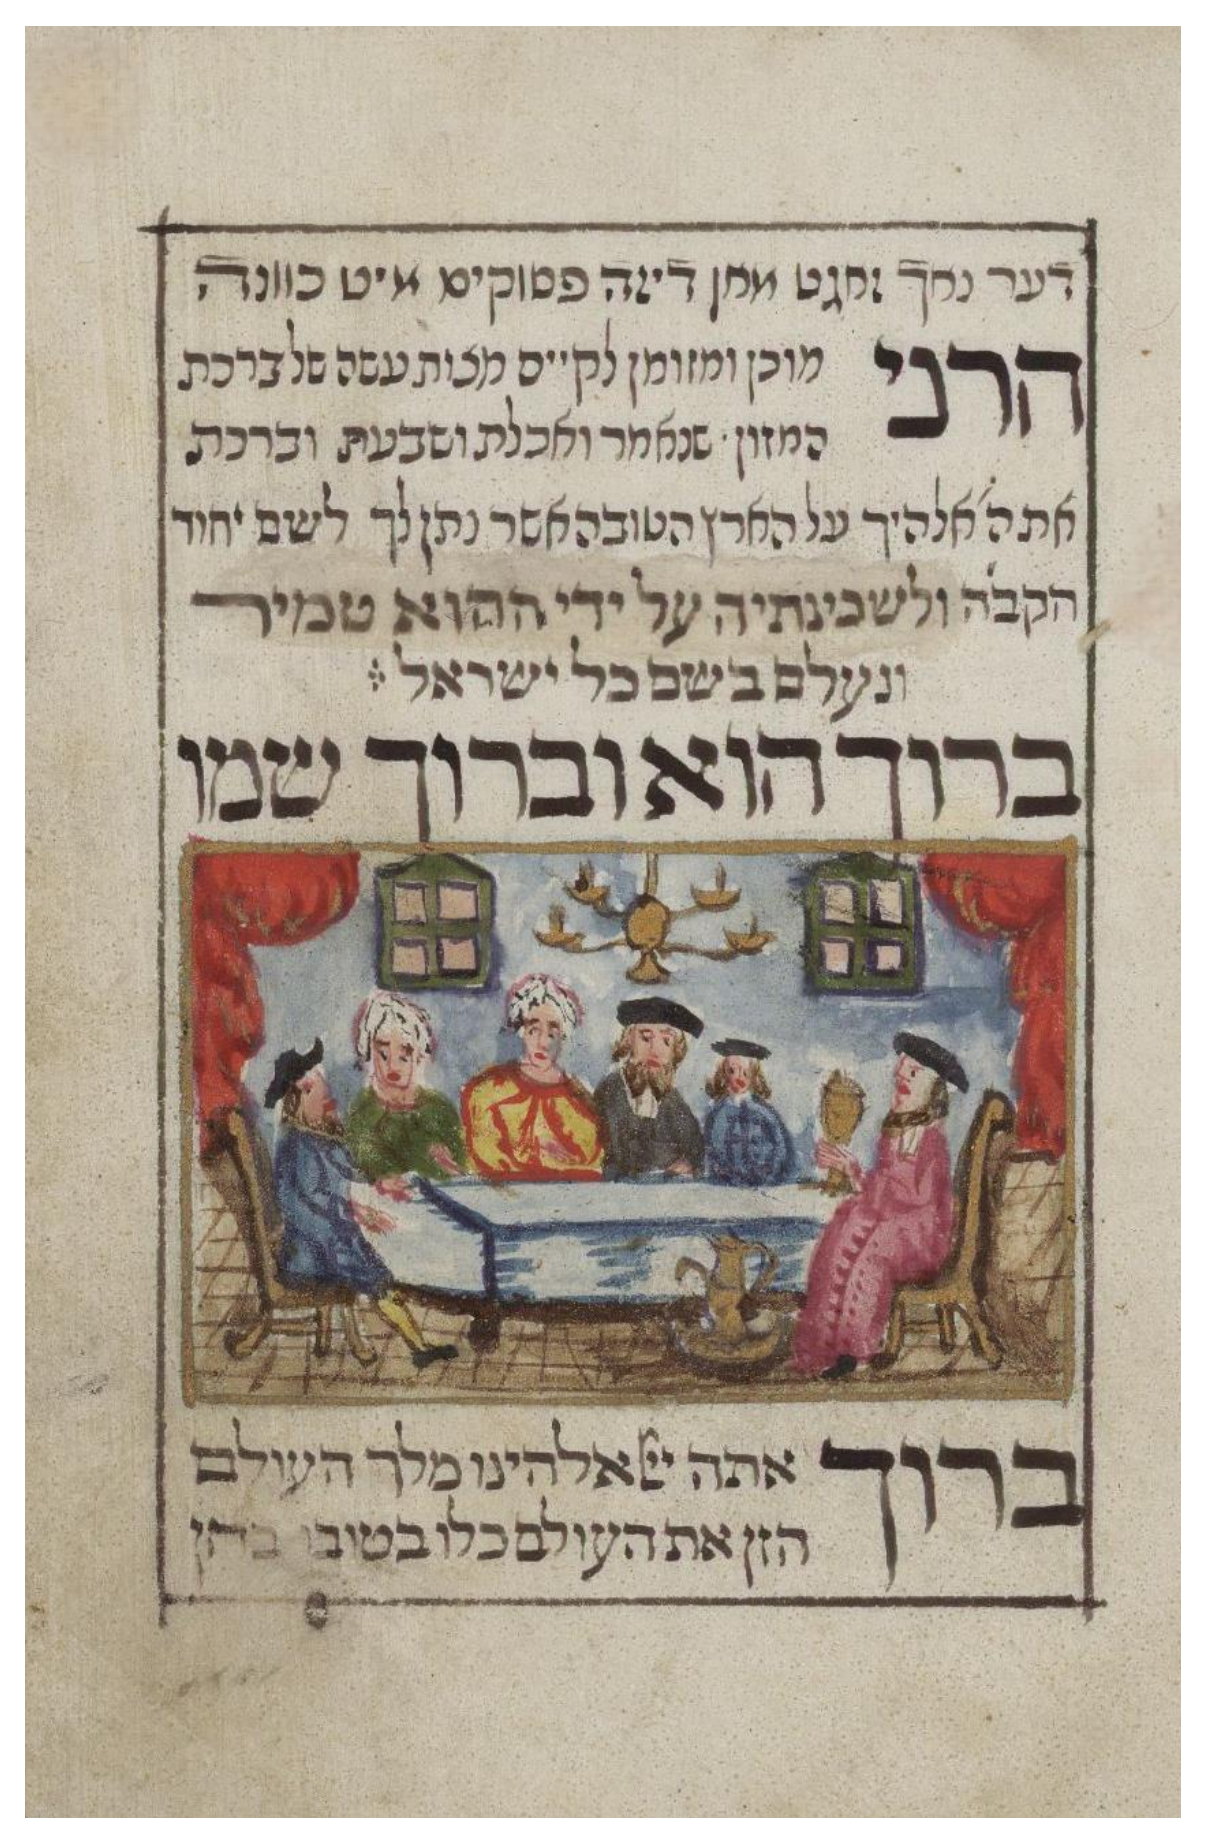 דער נאך זאגט מאן דיזה פסוקים מיט כוונה
הרני מוכן ומזומן לקיים מצות עשה של ברכת
המזון· שנאמר ואכלת ושבעת וברכת
את ה׳ אלהיך על הארץ הטובה אשר נתן לך לשם יחוד
הקבה ולשכינתיה על ידי ההוא טמיר
ונעלם בשם כל ישראל
ברוך הוא וברוך שמו
ברוך אתה יי אלהינו מלך העולם
הזן את העולם כלו בטובו בחן